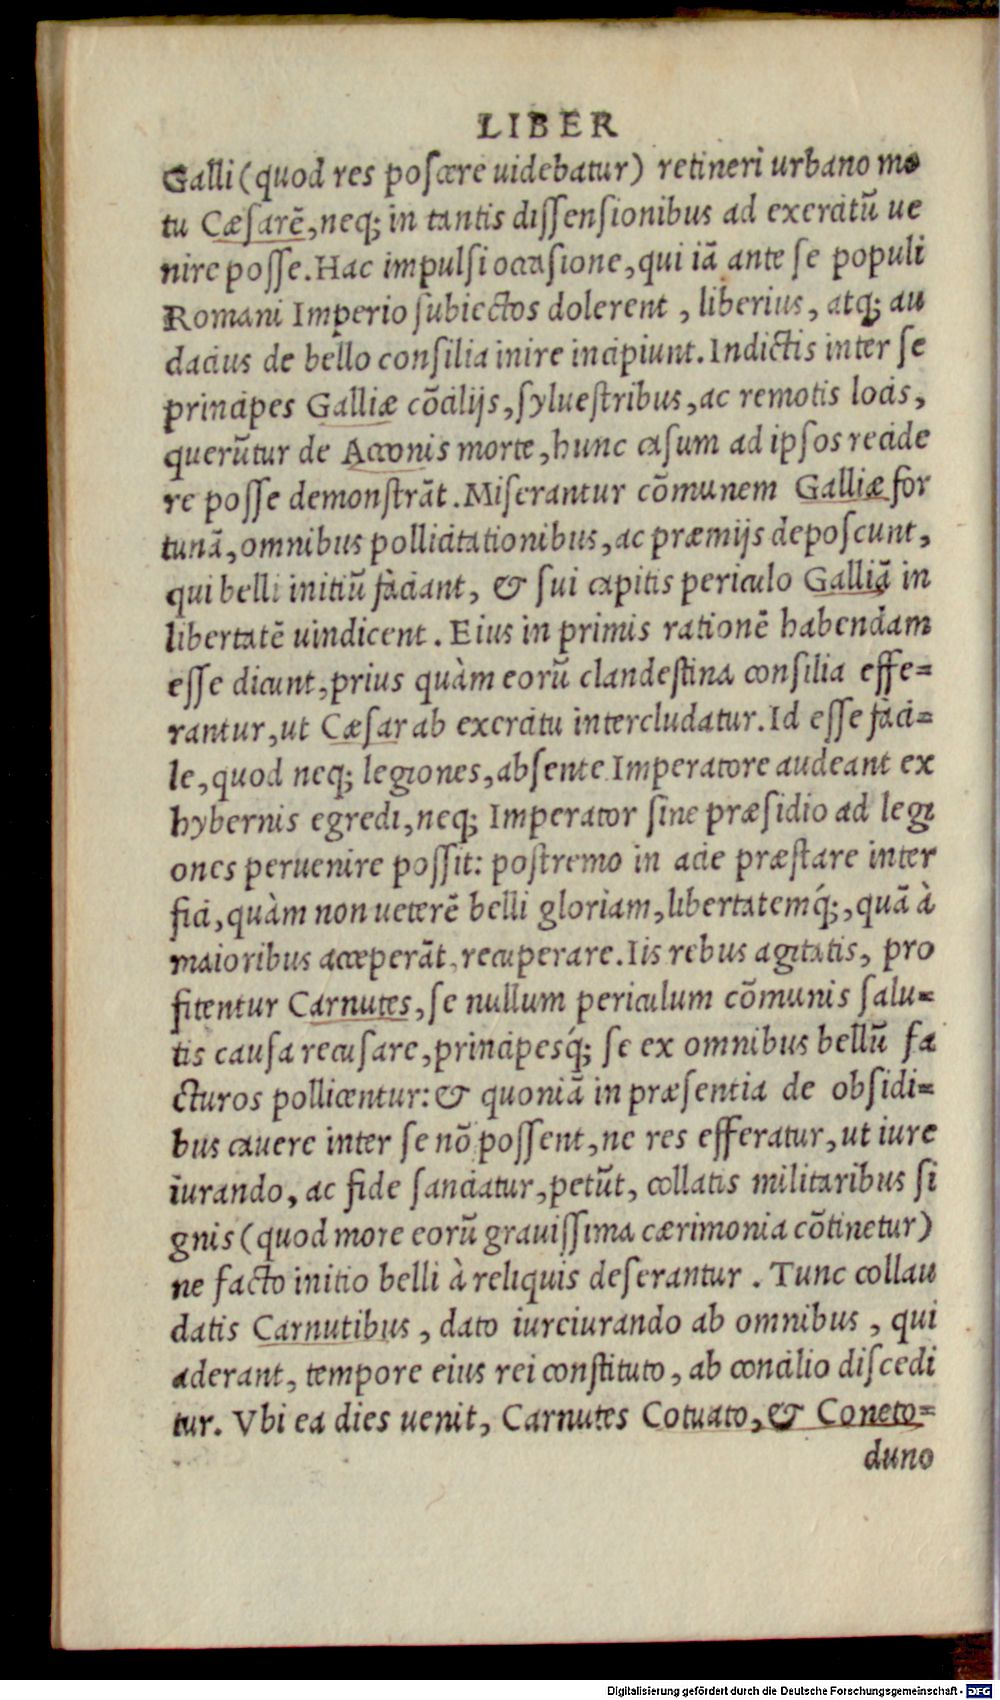 LIBER
Galli (quod res poscere uidebatur) retineri urbano mo
tu Cæsarē, neq; in tantis dissensionibus ad exercitū ue
nire posse. Hac impulsi occasione, qui iā ante se populi
Romani Imperio subiectos dolerent, liberius, atq; au
dacius de bello consilia inire incipiunt. Indictis inter se
principes Galliæ cōcilijs, syluestribus, ac remotis locis,
querūtur de Acconis morte, hunc casum ad ipsos recide
re posse demonstrāt. Miserantur cōmunem Galliæ for
tunā, omnibus pollicitationibus, ac præmijs deposcunt,
qui belli initiū faciant, & sui capitis periculo Galliā in
libertatē uindicent. Eius in primis rationē habendam
esse dicunt, prius quàm eorū clandestina consilia effe=
rantur, ut Cæsar ab exercitu intercludatur. Id esse faci=
le, quod neq; legiones, absente Imperatore audeant ex
hybernis egredi, neq; Imperator sine præsidio ad legi
ones peruenire possit: postremo in acie præstare inter
fici, quàm non ueterē belli gloriam, libertatemq́;, quā à
maioribus acceperāt, recuperare. Iis rebus agitatis, pro
fitentur Carnutes, se nullum periculum cōmunis salu=
tis causa recusare, principesq́; se ex omnibus bellū fa
cturos pollicentur: & quoniā in præsentia de obsidi=
bus cauere inter se nō possent, ne res efferatur, ut iure
iurando, ac fide sanciatur, petūt, collatis militaribus si
gnis (quod more eorū grauissima cærimonia cōtinetur)
ne facto initio belli à reliquis deserantur. Tunc collau
datis Carnutibus, dato iureiurando ab omnibus, qui
aderant, tempore eius rei constituto, ab concilio discedi
tur. Vbi ea dies uenit, Carnutes Cotuato, & Coneto=
duno
Digitalisierung gefördert durch die Deutsche Forschungsgemeinschaft - DFG